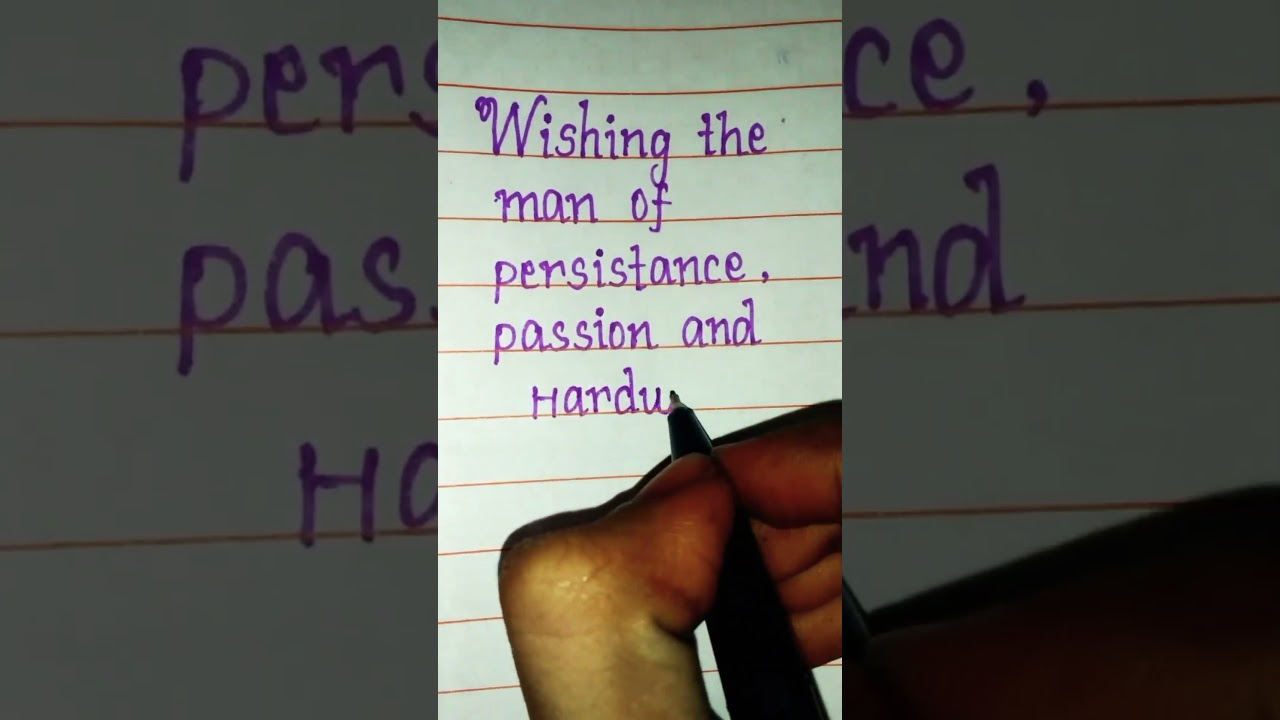 Wishing the
man of
persistance,
passion and
Hardu